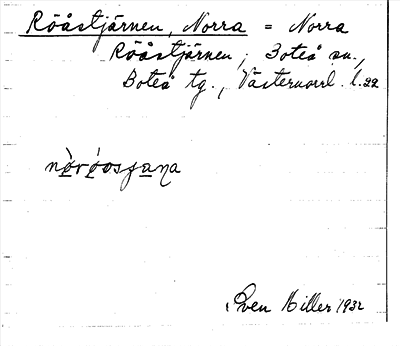 Rööstjärnen, Norra = Norra
Rööstjärnen, Boteå sn.,
Boteå tg., Västernorrl. l. 22
Sven Hiller 1932